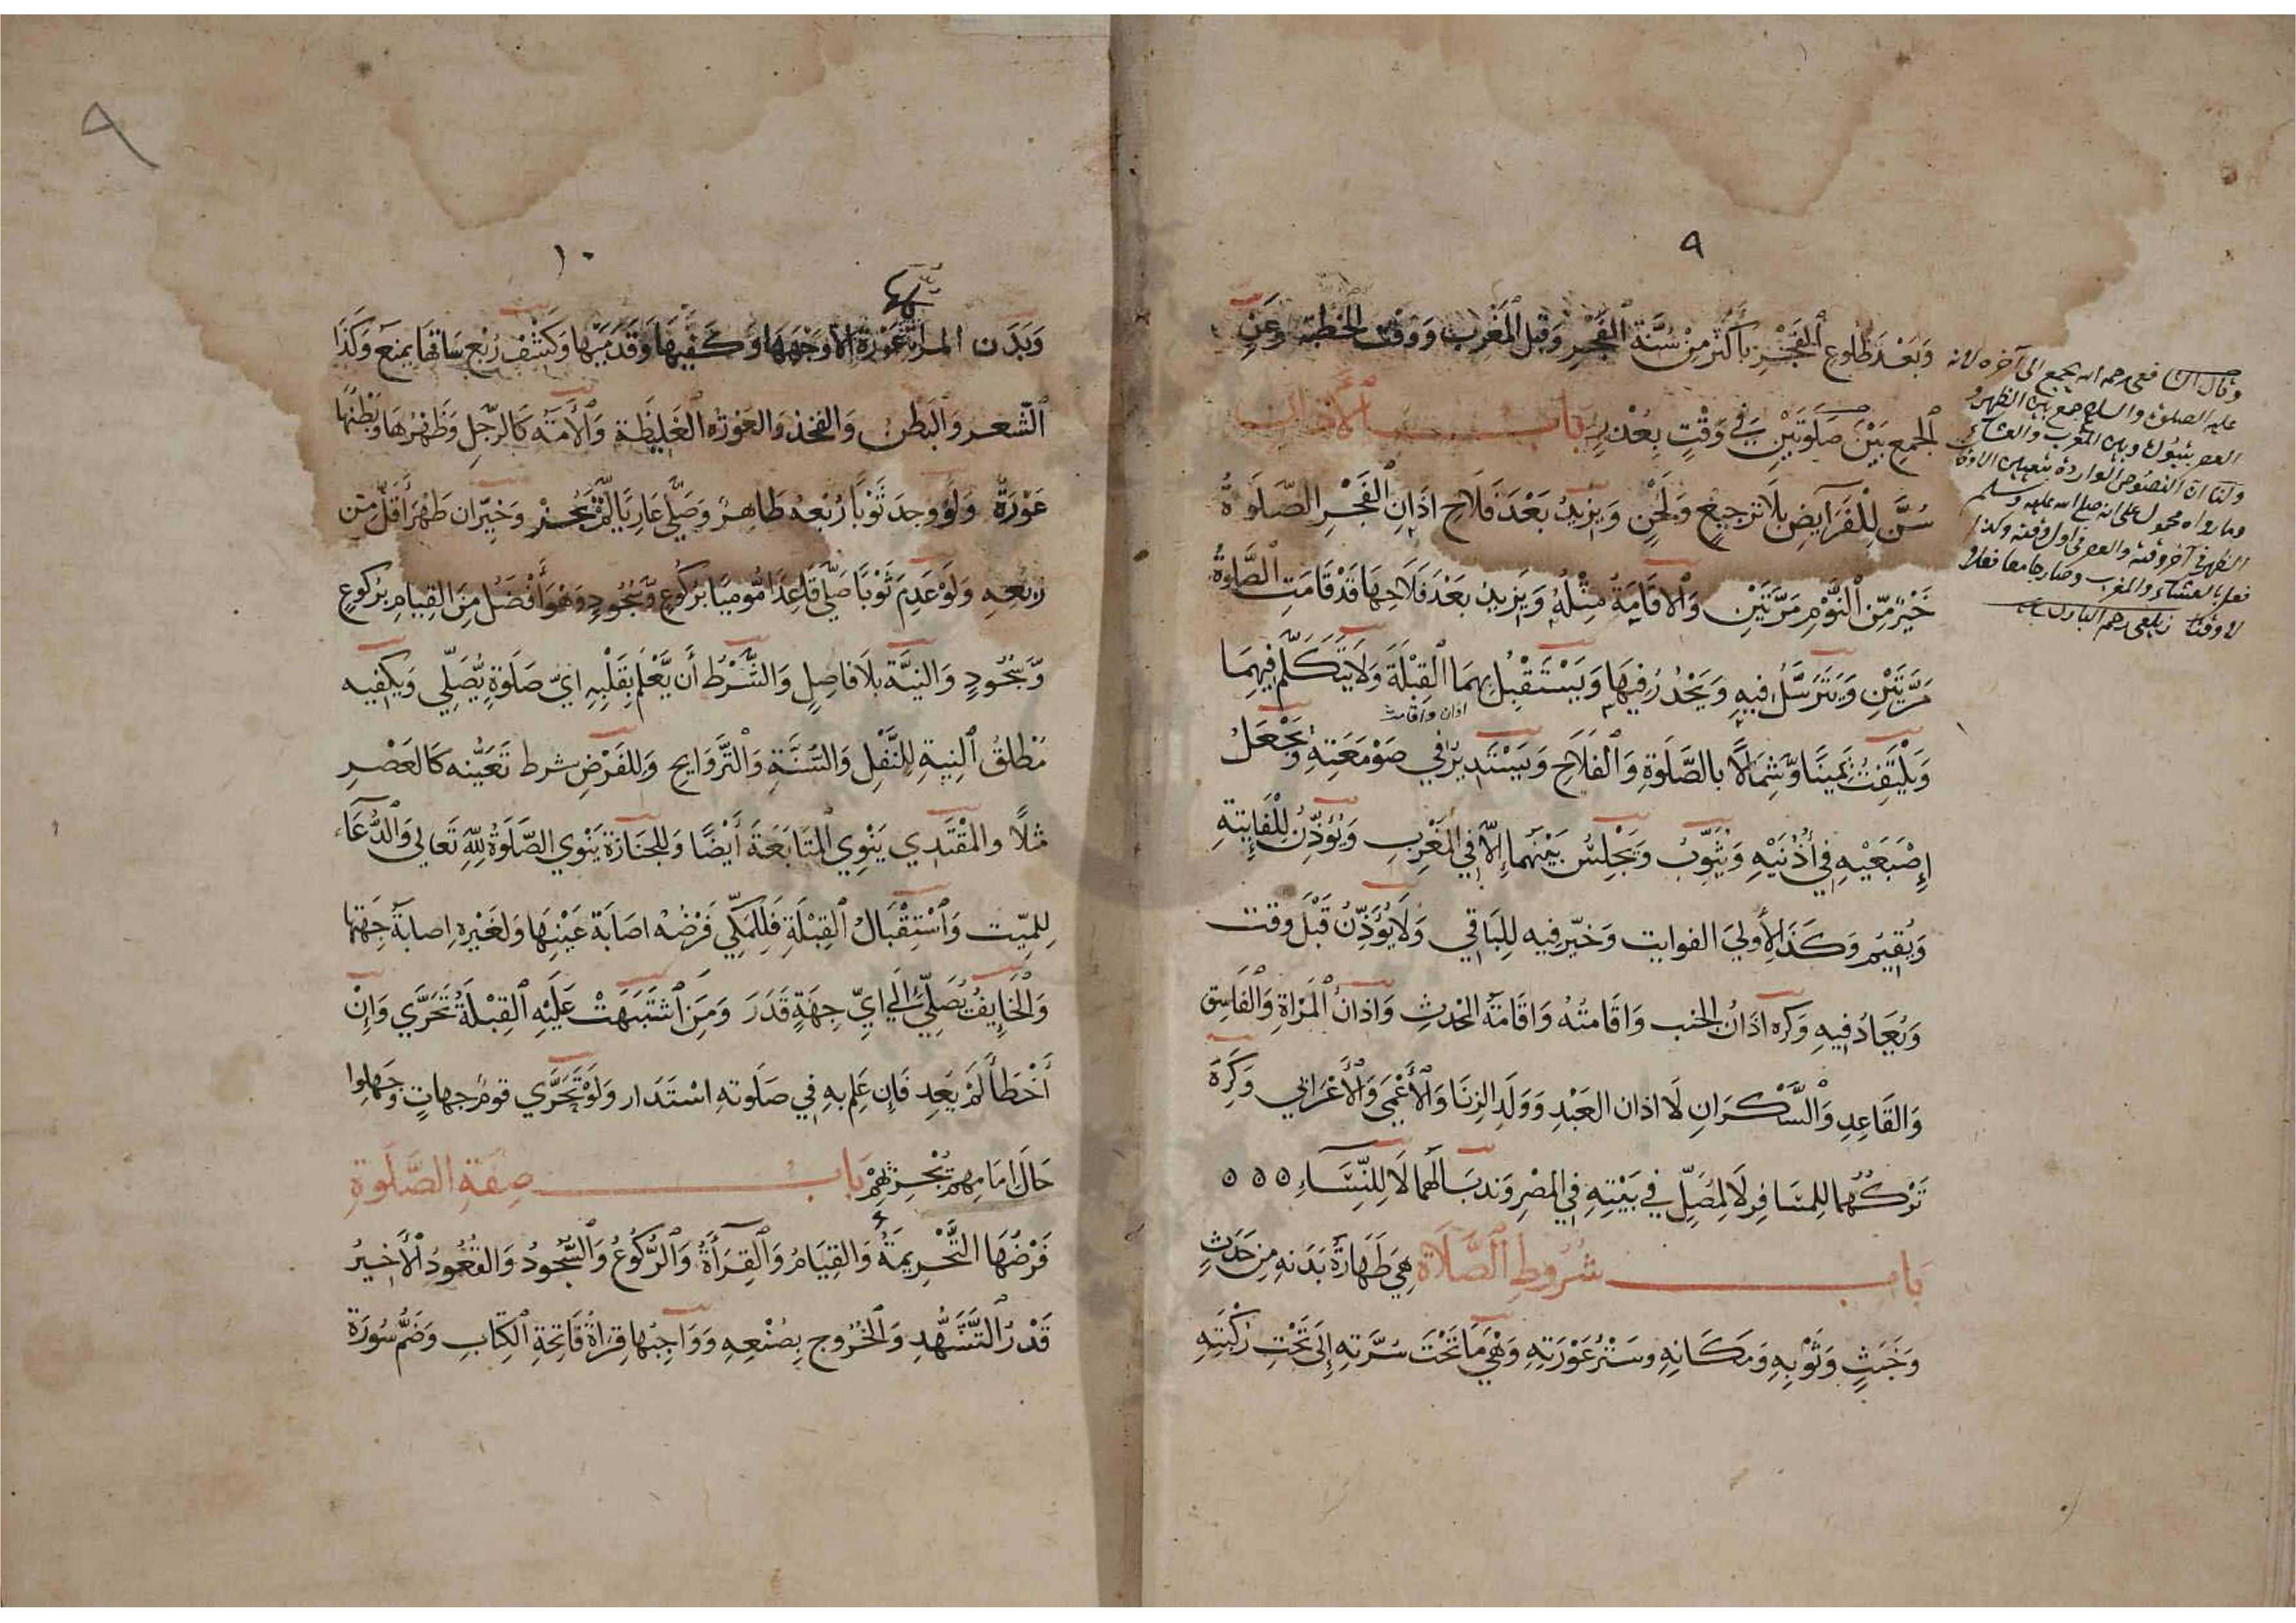 ٩
وَبَعْدَ طُلُوعِ الْفَجْرِ بِأَكْثَرَ مِنْ سُنَّةِ الْفَجْرِ وَقَبْلَ الْمَغْرِبِ وَوَقْتَ الْخُطْبَةِ وَعَنِ
الْجَمْعِ بَيْنَ صَلَوتَيْنِ فِي وَقْتٍ بِعُذْرٍ بَابُ الْأَذَانِ
سُنَّ لِلْفَرَآيِضِ بِلَا تَرْجِيعٍ وَلَحْنٍ وَيَزِيدُ بَعْدَ فَلَاحِ اذَانِ الْفَجْرِ الصَّلَوةُ
خَيْرٌ مِّنَ النَّوْمِ مَرَّتَيْنِ وَالْاِقَامَةُ مِثْلُهُ وَيَزِيدُ بَعْدَ فَلَاحِهَا قَدْ قَامَتِ الصَّلوةُ
مَرَّتَيْنِ وَيَتَرَسَّلُ فِيهِ وَيَحْدُرُ فِيهَا وَيَسْتَقْبِلُ بِهِمَا الْقِبْلَةَ وَلَا يَتَكَلَّمُ فِيهِمَا
اذان واقامت
وَيَلْتَفِتُ يَمِينًا وَّشِمَالًا بِالصَّلَوةِ وَالْفَلَاحِ وَيَسْتَدِيرُ فِي صَوْمَعَتِهِ وَيَجْعَلُ
إِصْبَعَيْهِ فِي أُذُنَيْهِ وَيُثَوِّبُ وَيَجْلِسُ بَيْنَهُمَا إِلَّا فِي الْمَغْرِبِ وَيُؤَذِّنُ لِلْفَايِتَةِ
وَيُقِيمُ وَكَذَا لِأُولَى الفوايت وَخُيِّرَ فِيهِ لِلْبَاقِي وَلَا يُؤَذِّنُ قَبْلَ وقت
وَيُعَادُ فِيهِ وَكره اذَانُ الجنب وَاقَامَتُهُ وَاقَامَةُ المُحْدِثِ وَاذانُ الْمَرْاةِ وَالْفَاسِقِ
وَالقَاعِدِ وَالسَّكْرَانِ لَا اذان العَبْدِ وَوَلَدِ الزِنَا وَالْأَعْمَى وَالْأَعْرَابِي وَكَرِهَ
تَرْكُهُمَا لِلمسَافِرِ لَا لِمُصَلٍّ فِي بَيْتِهِ فِي المِصْرِ وَنُدِبَا لَهُمَا لَا لِلنِّسَآءِ ٥ ٥ ٥
بَابُ شُرُوطِ الصَّلَاةِ هِيَ طَهَارَةُ بَدَنِهِ مِنْ حَدَثٍ
وَخَبَثٍ وَثَوْبِهِ وَمَكَانِهِ وسَتْرُ عَوْرَتِهِ وَهِيَ مَا تَحْتَ سُرَّتِهِ إِلَى تَحْتِ رُكْبَتِهِ
وقال الشافعى رحمه الله يجمع الى آخره لانه
عليه الصلوة والسلام جمع بين الظهر و
العصر بتبوك وبين المغرب والعشاء
ولنا ان النصوص الواردة بتعيين الاوقات
وما رواه محمول على انه صلى الله عليه وسلم
الظهر فى آخر وقته والعصر فى اول وقته وكذا
فعل بالعشاء والمغرب وصار جامعا فعلا
لا وقتا زيلعى رحم البارى
٩
١٠
وَبَدَن المرأة عَوْرَةٌ إِلَّا وَجْهَهَا وَكَفَّيْهَا وَقَدَمَيْهَا وَكَشْفُ رُبْعِ سَاقِهَا يَمْنَعُ وَكَذَا
الشَّعر وَالْبَطْنُ وَالفَخذ وَالعَوْرَةُ الغَلِيظَة وَالْأَمَةُ كَالرَّجُلِ وَظَهْرُهَا وَبَطْنُهَا
عَوْرَةٌ وَلَوْ وجدَ ثَوْبًا رُبْعُهُ طَاهِرٌ وَصَلَّى عَارِيًا لَّمْ يَجُزْ وَخُيِّرَ ان طَهُرَ أَقَلُّ مِنْ
رُبْعِهِ وَلَوْ عَدِمَ ثَوْبًا صَلَّى قَاعِدًا مُّومِيًا بِرُكُوعٍ وَّسُجُودٍ وَهْوَ أَفْضَلُ مِنَ القِيَامِ بِرُكُوعٍ
وَّسُجُودٍ وَالنِيَّةُ بِلَا فَاصِلٍ وَالشَّرْطُ أَن يَّعْلَمَ بِقَلْبِهِ ايَّ صَلَوةٍ يُّصَلِّي وَيَكْفِيه
مُطْلَقُ النِيةِ لِلنَّفْلِ وَالسُّنَّةِ وَالتَّرَوَايحِ وَلِلفَرْضِ شرط تَعَيُّنه كَالعَصْرِ
مَثلًا والمُقْتَدِي يَنْوِي الْمُتَابَعَةَ أَيْضًا وَلِلجَنَازَةِ يَنْوِي الصَّلَوةَ لِلّهِ تَعَالى وَالدُّعَآءَ
لِلميّت وَاسْتِقْبَالُ القِبْلَةِ فَلِلمَكِّي فَرْضُهُ اصَابَةُ عَيْنِهَا وَلِغَيْرِهِ اِصابَةُ جِهَتِهَا
وَالْخَايِفُ يُصَلِّي إِلَى ايِّ جِهَةٍ قَدَرَ وَمَنِ اشْتَبَهَتْ عَلَيْهِ الْقِبْلَةُ تَحَرَّي وَاِنْ
أَخْطَأَ لَمْ يَعِد فَإِن عَلِمَ بِهِ فِي صَلَوتِهِ اسْتَدَار وَلَوْ تَحَرَّي قومٌ جِهَاتٍ وَجَهِلوا
حَالَ إِمَامِهِمْ يُجْزِئهِمْ بَابُ صِفَةِ الصَّلَوةِ
فَرْضُهَا التَّحْرِيمَةُ وَالقِيَامُ وَالْقِرَأَةُ وَالرُّكُوعُ وَالسُّجُودُ وَالقُعُودُ الْأَخِيرُ
قَدْرُ التَّشَهُّدِ وَالخُرُوج بِصُنْعِهِ وَوَاجِبُهَا قِرَاةُ فَاتِحَةِ الكِتَابِ وَضَمُّ سُورَةٍ